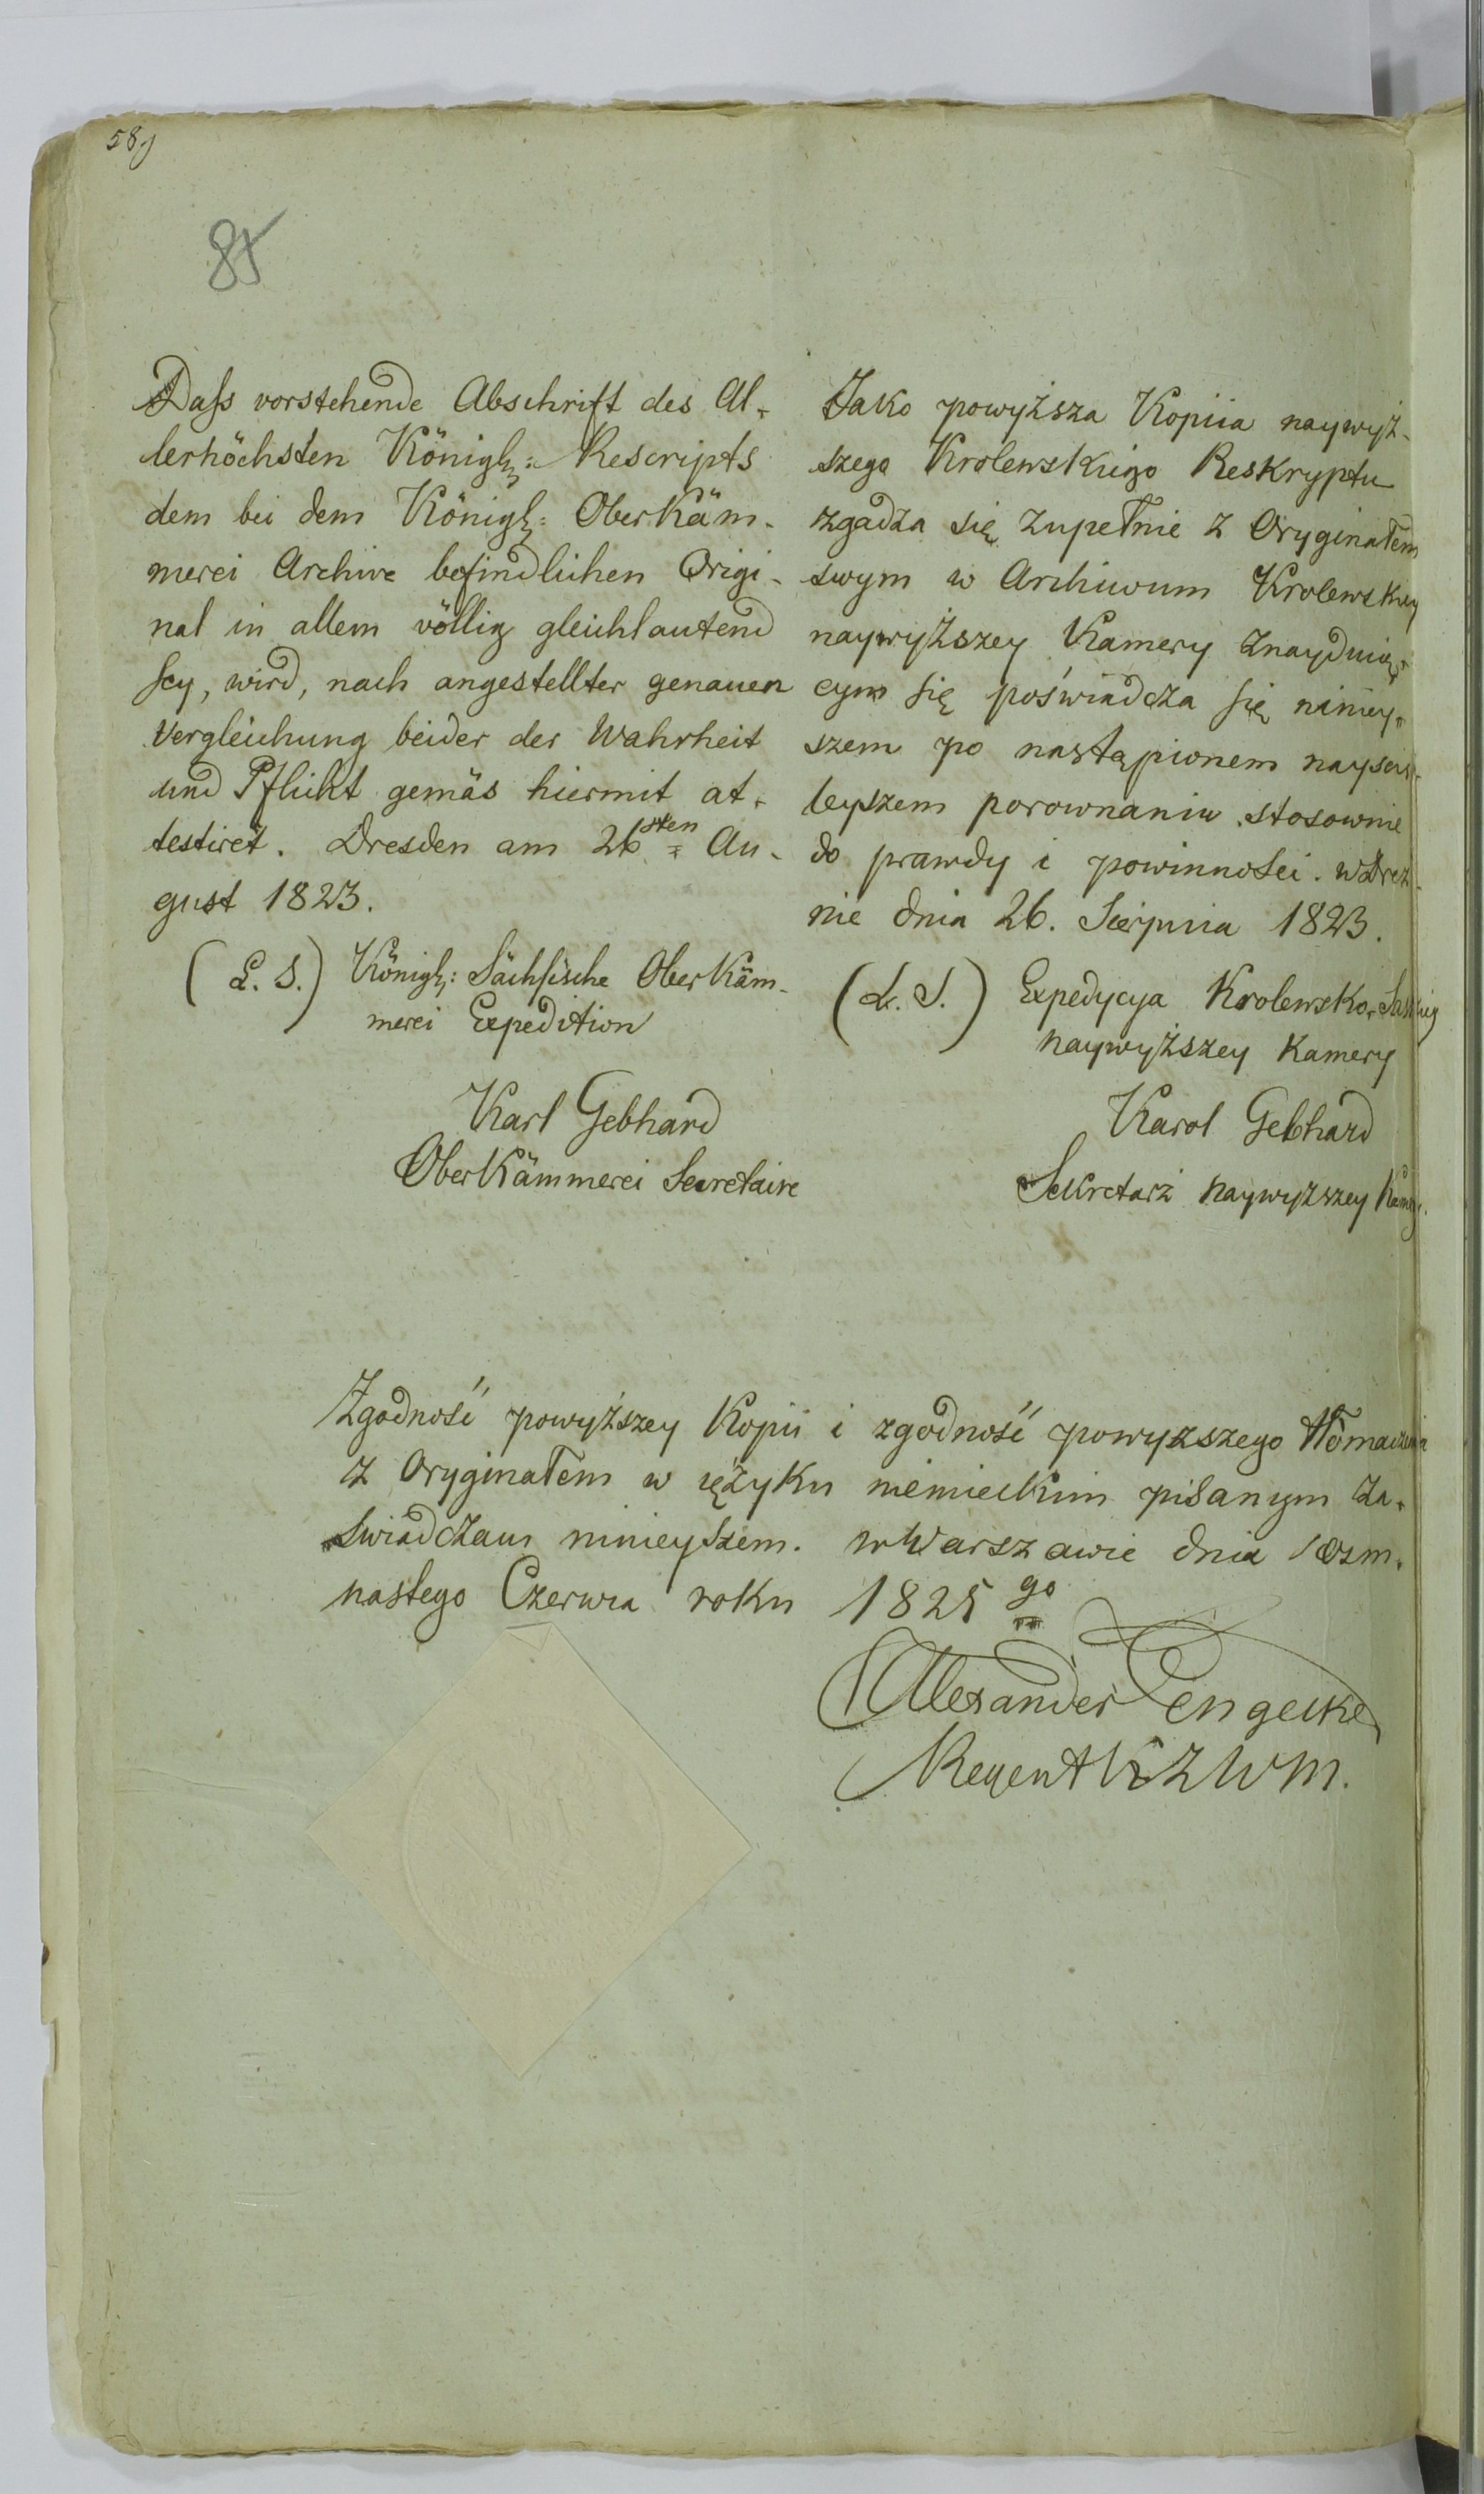 58)
85
Dass vorstehende Abschrift des Al-
lerhöchsten Königl: Rescripts
dem bei dem Königl: OberKäm-
merei Archive befindlichen Origi-
nal in allem völlig gleichlautend
sey, wird, nach angestellter genauen
Vergleichung beider der Wahrheit
und Pflicht gemäs hiermit at-
testiret. Dresden am 26sten Au-
gust 1823.
(L. S.) Königl: Sächsische OberKäm-
merei Expedition
Karl Gebhard
OberKämmerei Secretaire
Jako powyższa Kopiia naywyż-
szego Krolewskiego Reskryptu
zgadza się zupełnie z Oryginałem
swym w Archiwum Krolewskiey
naywyższey Kamery znayduią-
cym się poświadcza się niniey-
szem po nastąpionem nayściś-
leyszem porownaniu stosownie
do prawdy i powinności. w Drez-
nie dnia 26. Sierpnia 1823.
(L. S.) Expedycya Krolewsko-Saskiey
naywyższey Kamery
Karol Gebhard
Sekretarz naywyższey Kamery.
Zgodność powyższey Kopii i zgodność powyższego tłomaczenia
z Oryginałem w ięzyku niemieckim pisanym za-
świadczam ninieyszem. w Warszawie dnia osm-
nastego Czerwca roku 1825 go
Alexander Engelke
Regent KZWM.